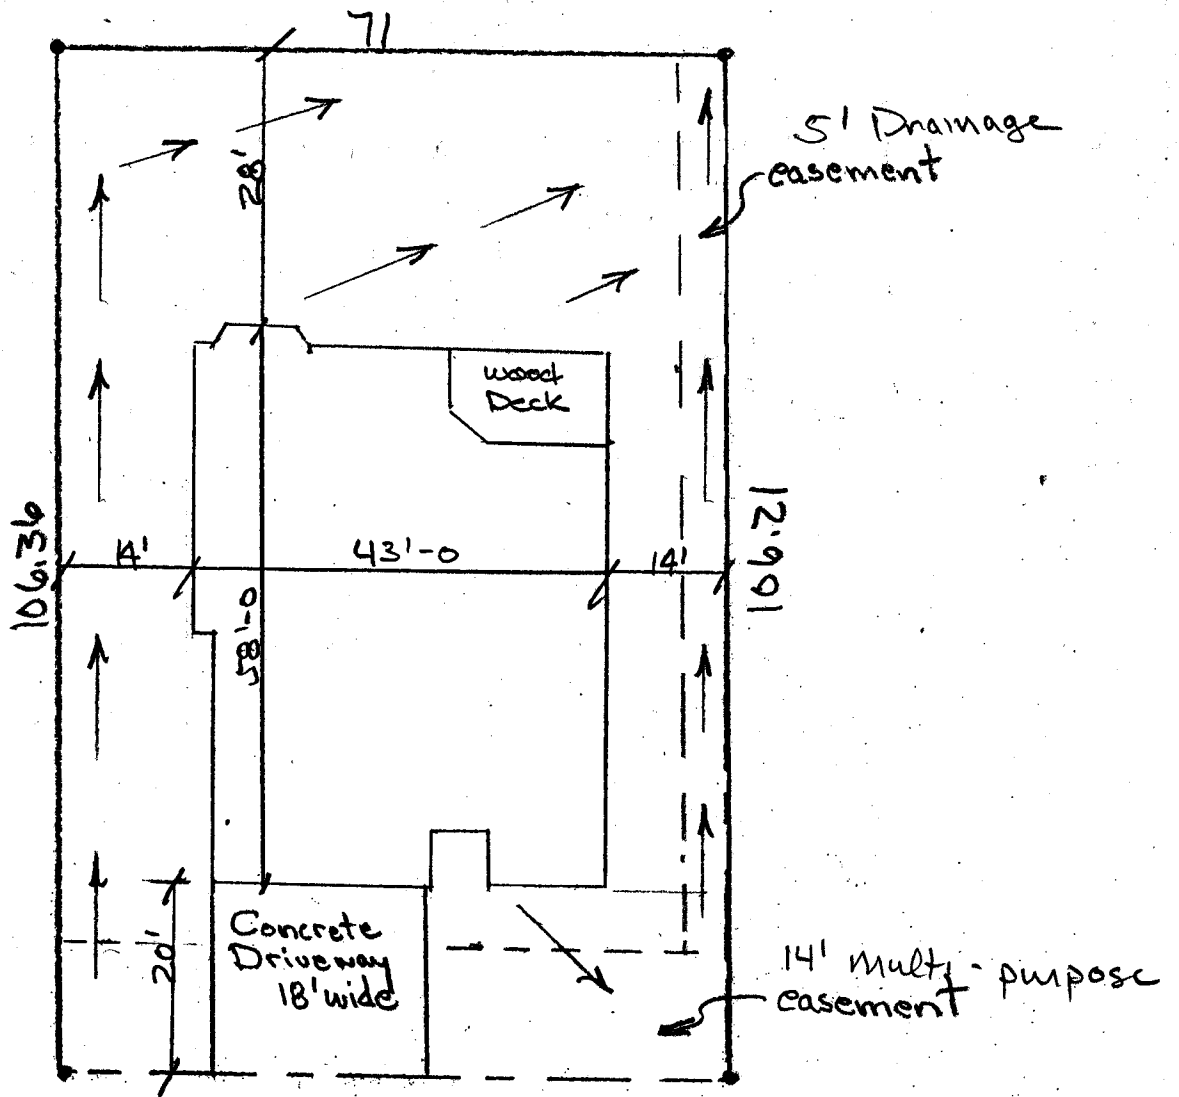 71
5' Drainage
easement
28'
wood
Deck
106.36
14'
43'-0
14'
106.21
58'-0
Concrete
Driveway
18' wide
20'
14' Multi-purpose
easement